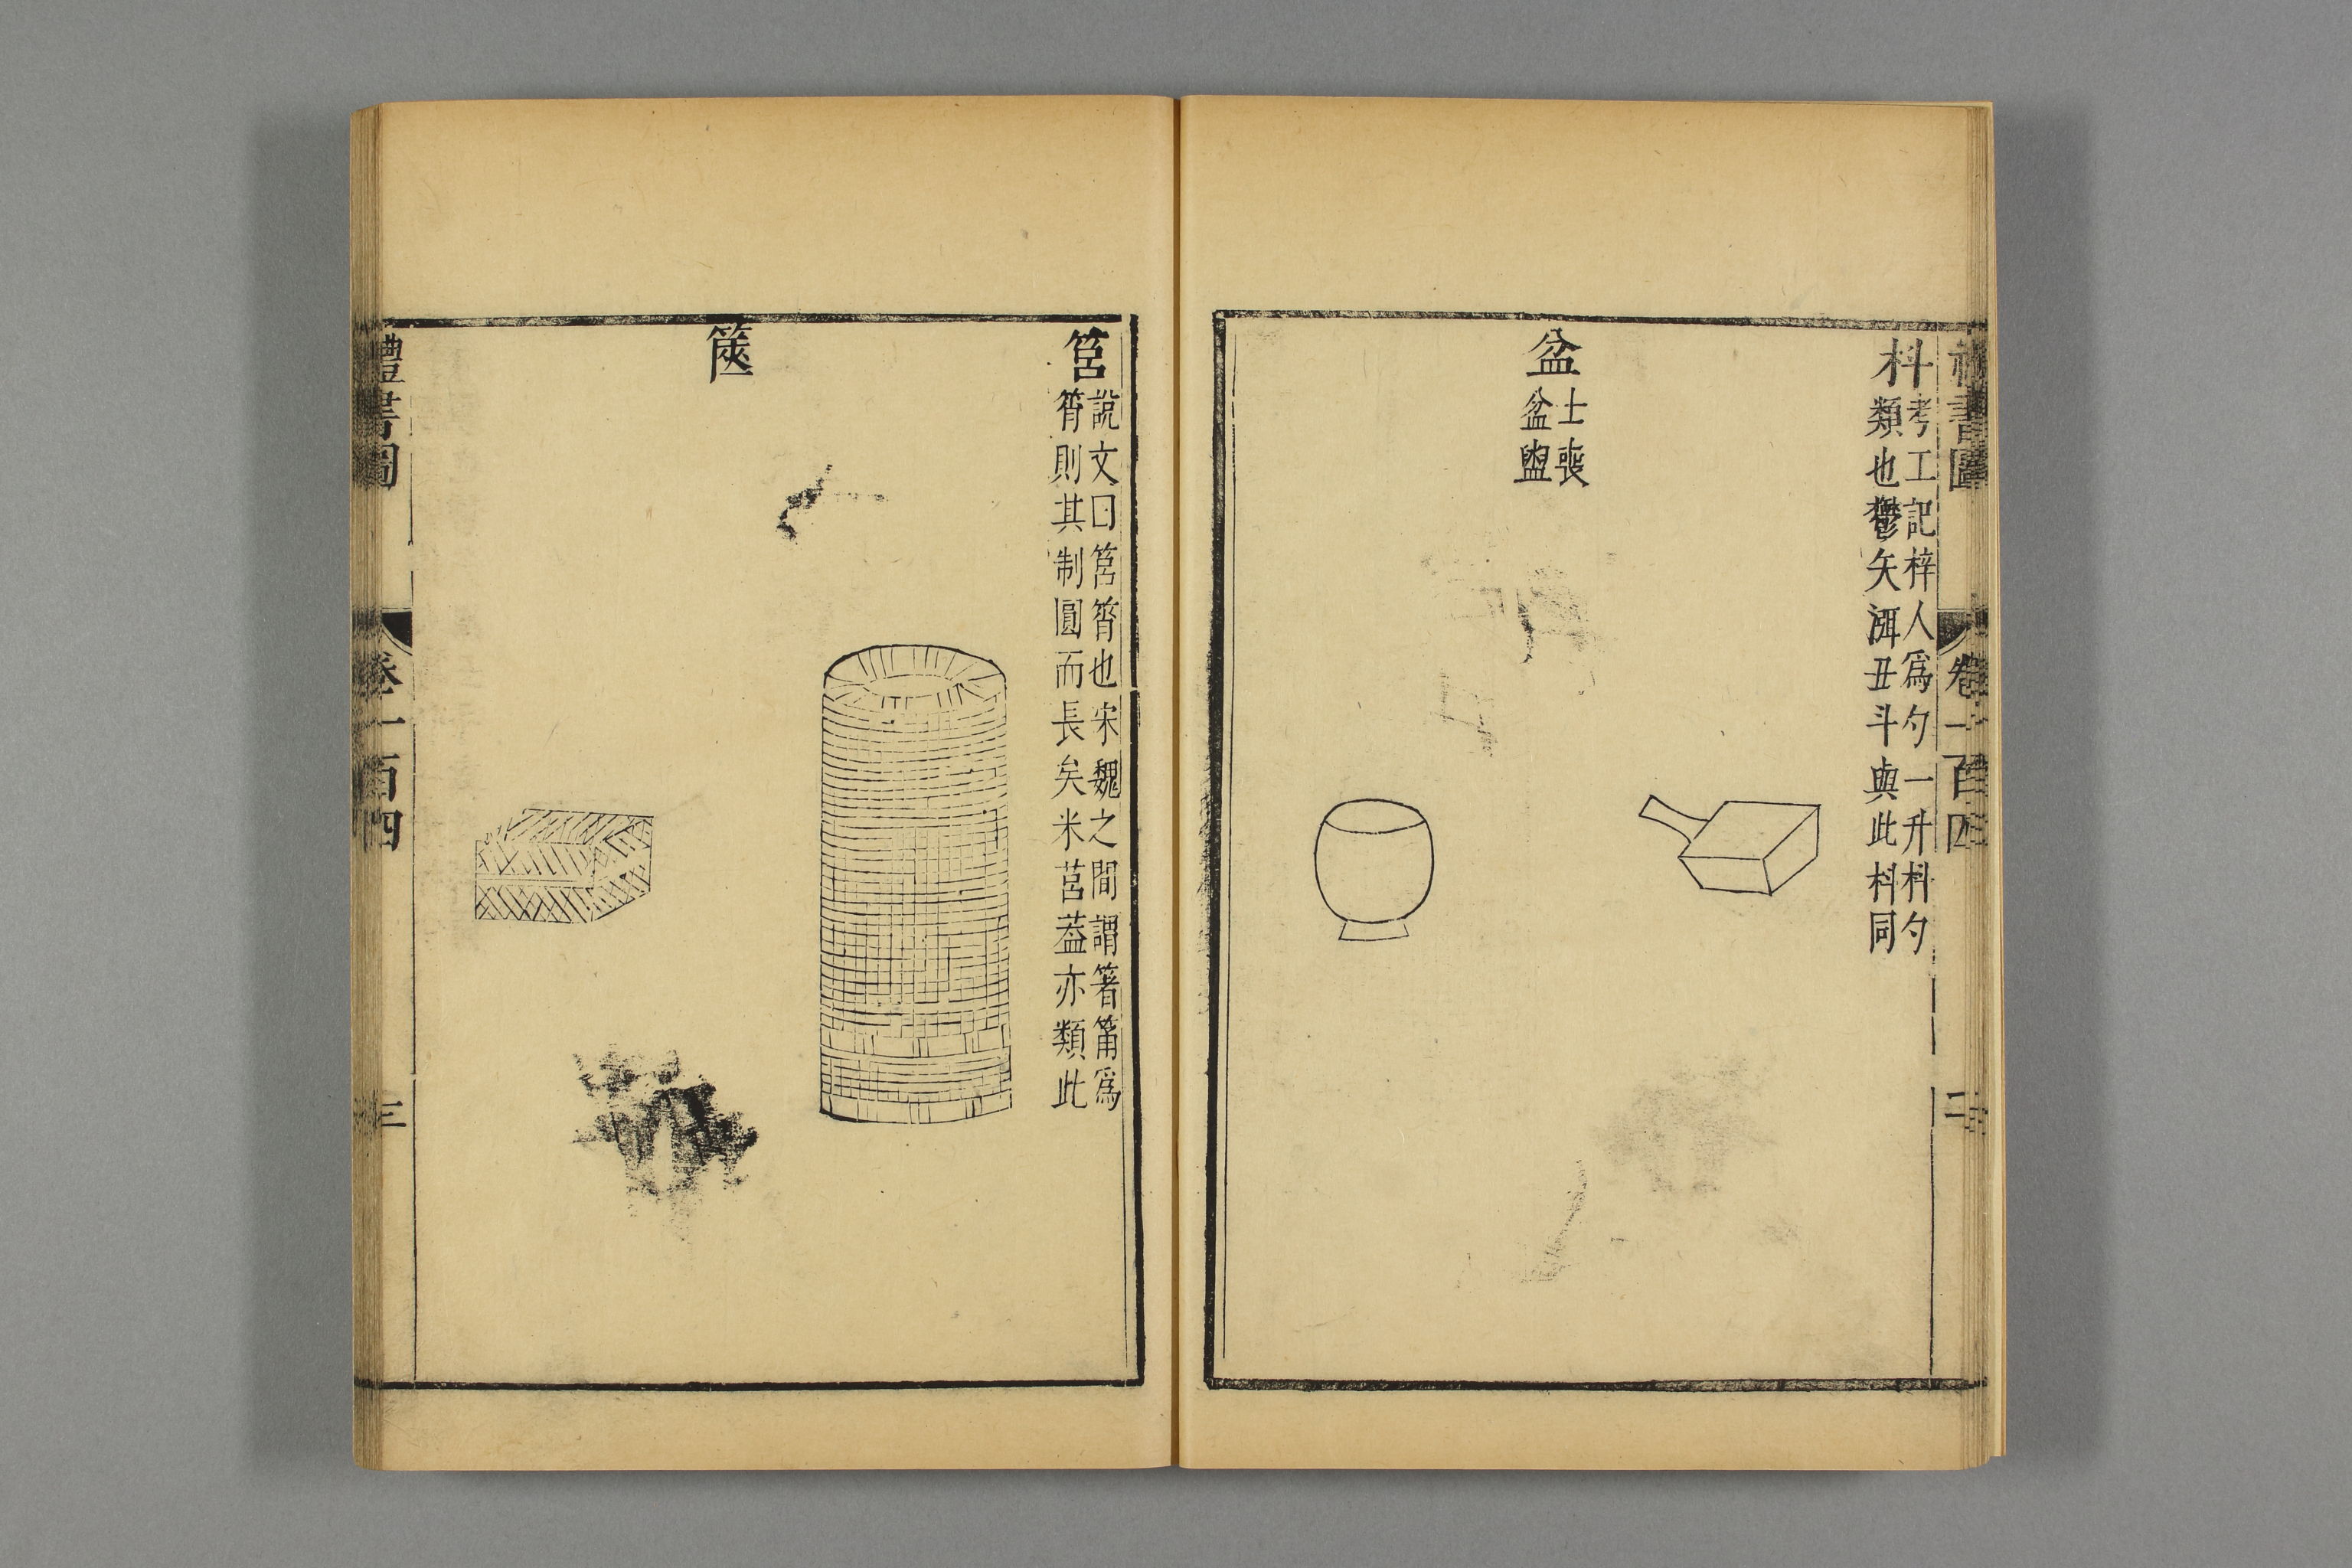 禮書圖 卷一百四 二
枓
考工記梓人爲勺一升枓勺
類也鬱矢洱丑斗與此枓同
盆
士喪
盆盥
筥
說文曰筥筲也宋魏之間謂箸筩爲
筲則其制圓而長矣米莒葢亦類此
篋
禮書圖 卷一百四 三